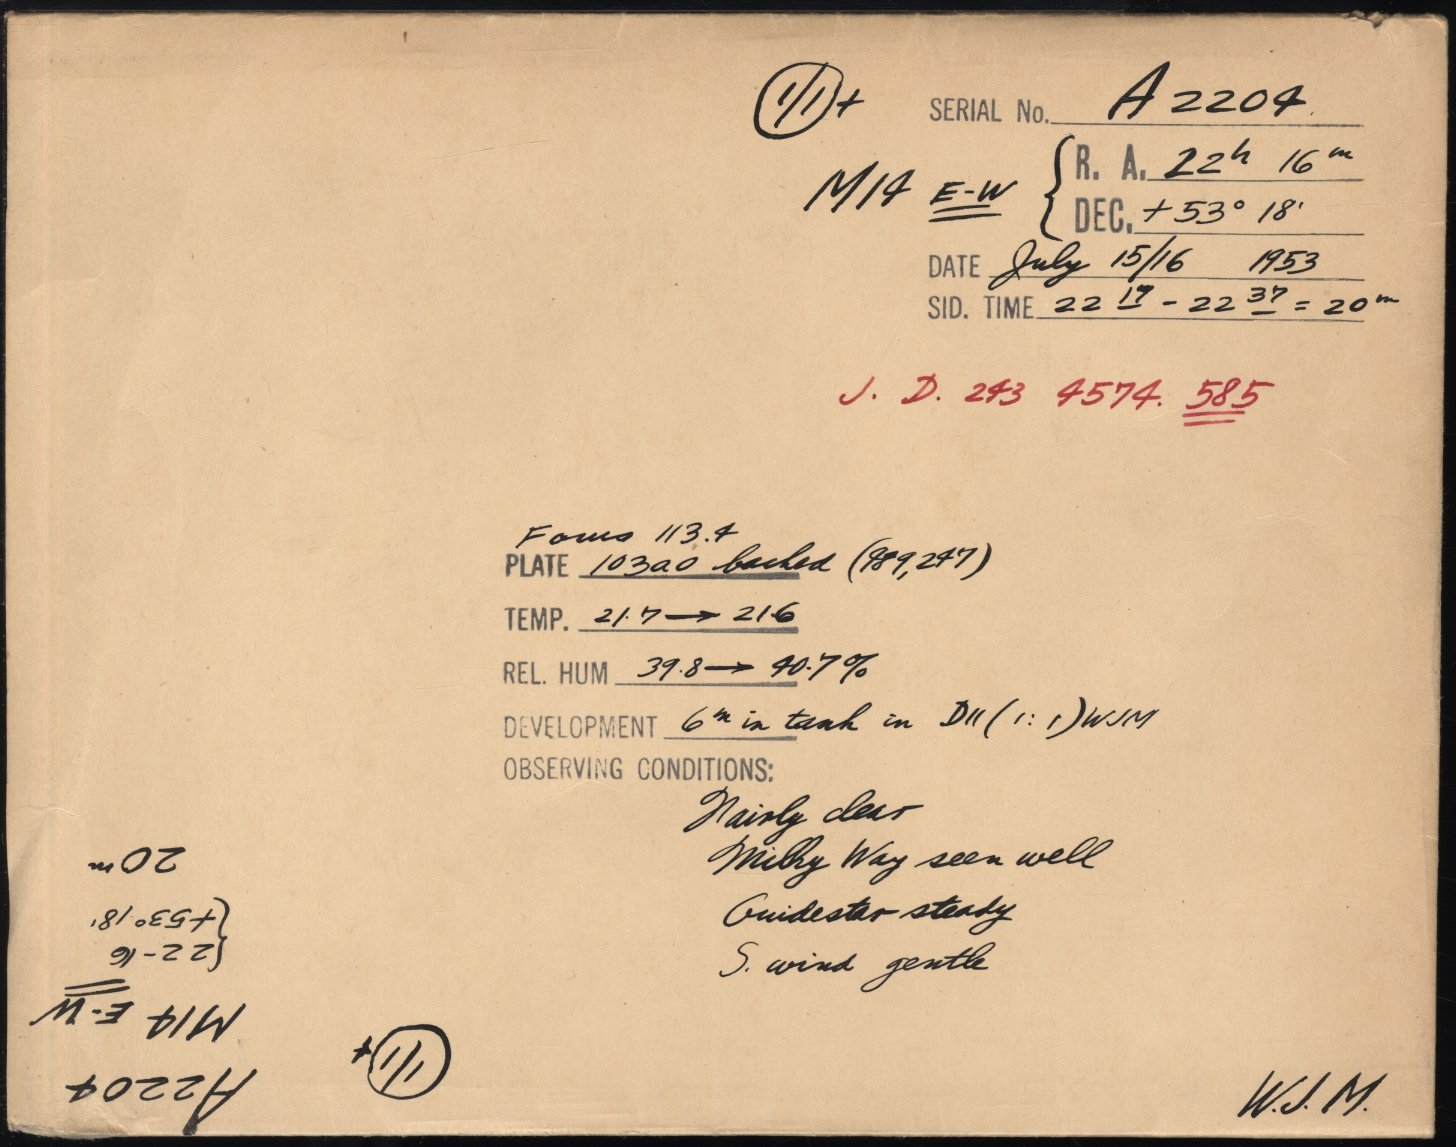 1/1 +
SERIAL No. A 2204
M14 E-W
R. A. 22h 16m
DEC. +53° 18'
DATE July 15/16 1953
SID. TIME 22 17 - 22 37 = 20m
J. D. 243 4574.585
Focus 113.4
PLATE 103aO backed (989,247)
TEMP. 21.7 → 21.6
REL. HUM 39.8 → 40.7%
DEVELOPMENT 6m in tank in D11 (1:1) WJM
OBSERVING CONDITIONS:
Fairly clear
Milky Way seen well
Guidestar steady
S. wind gentle
W.J.M.
1/1 +
A2204
M14 E-W
22-16
+53° 18'
20m